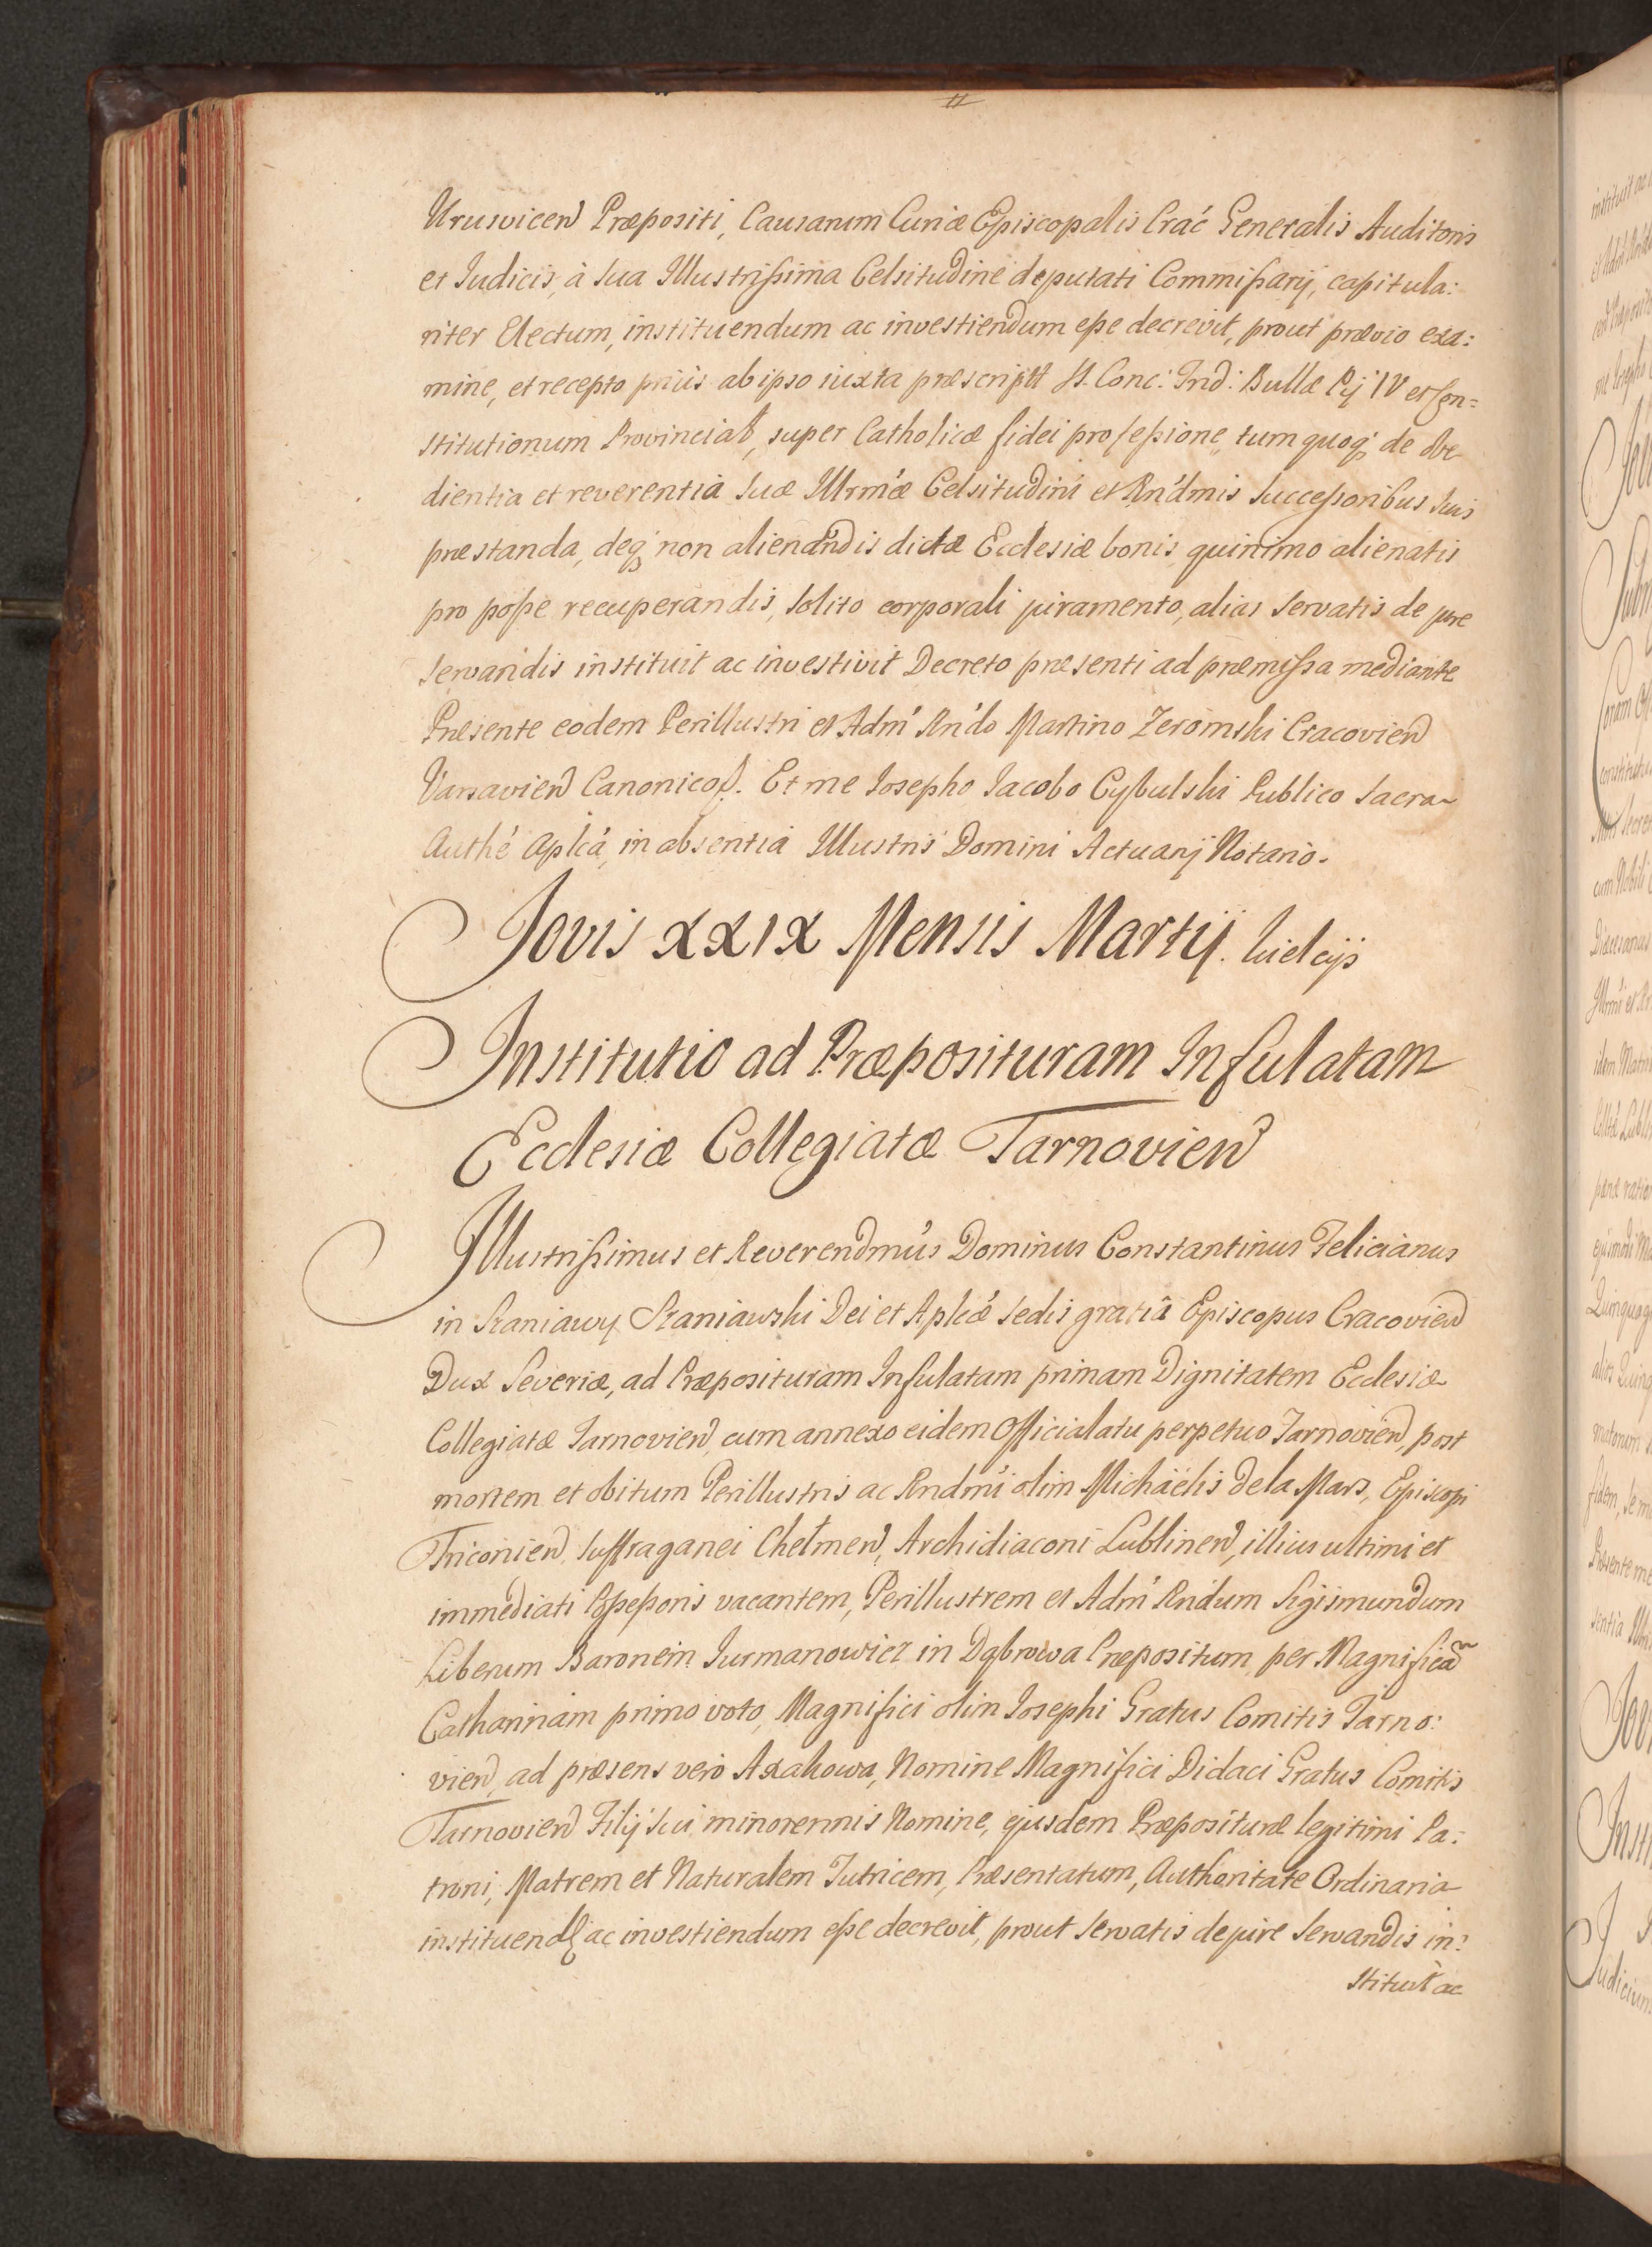 Uruscicen Præpositi, Causarum Curiæ Episcopalis Crac̄ Generalis Auditoris
et Judicis, à Sua Illustrißima Celsitudine deputati Commißarij, capitula:
riter Electum, instituendum ac investiendum eße decrevit, prout prævio exa:
mine, et recepto priùs ab ipso iuxta præscriptt S. Conc: Trid: Bullæ Pij IV et Con=
stitutionum Provincial, super Catholicæ fidei profeßione, tum quoq; de obe
dientia et reverentia Suæ Illrmæ Celsitudini et Rndmis Succeßoribus Suis
præstanda, deq; non alienandis dictæ Ecclesiæ bonis, quinimo alienatis
pro poße recuperandis, solito corporali juramento, alias servatis de jure
servandis instituit ac investivit Decreto præsenti ad præmißa mediante
Præsente eodem Perillustri et Adm̄ Rndo Martino Zeromski Cracovien
Varsavien Canonico. Et me Josepho Jacobo Cybulski Publico Sacra
Authē Aplcā, in absentia Illustris Domini Actuarij Notario.
Jovis XXIX Mensis Martij. Kielcijs
Institutio ad Præposituram Infulatam
Ecclesiæ Collegiatæ Tarnovien
Illustrißimus et Reverendmus Dominus Constantinus Felicianus
in Szaniawy Szaniawski Dei et Aplicæ Sedis gratiâ Episcopus Cracovien
Dux Severiæ, ad Præposituram Infulatam primam Dignitatem Ecclesiæ
Collegiatæ Tarnovien, cum annexo eidem Officialatu perpetuo Tarnovien, post
mortem et obitum Perillustris ac Rndmi olim Michaëlis de la Mars, Episcopi
Triconien, Suffraganei Chełmen, Archidiaconi Lublinen, illius ultimi et
immediati Poßeßoris vacantem, Perillustrem et Adm̄ Rndum Sigismundum
Liberum Baronem Jurmanowicz in Dąbrowa Præpositum, per Magnificã
Catharinam primo voto, Magnifici olim Josephi Gratus Comitis Tarno:
vien, ad præsens verò Axakowa, Nomine Magnifici Didaci Gratus Comitis
Tarnovien Filij sui minorennis Nomine, ejusdem Præposituræ legitimi Pa:
troni, Matrem et Naturalem Tutricem, Præsentatum, Authoritate Ordinaria
instituend ac investiendum eße decrevit, prout servatis de jure servandis in:
stituit ac